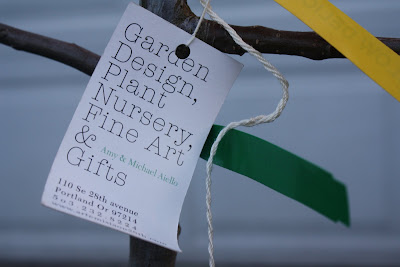 Garden
Design,
Plant
Nursery,
Fine Art
&
Amy & Michael Aiello
Gifts
110 Se 28th avenue
Portland Or 97214
503-232-8224